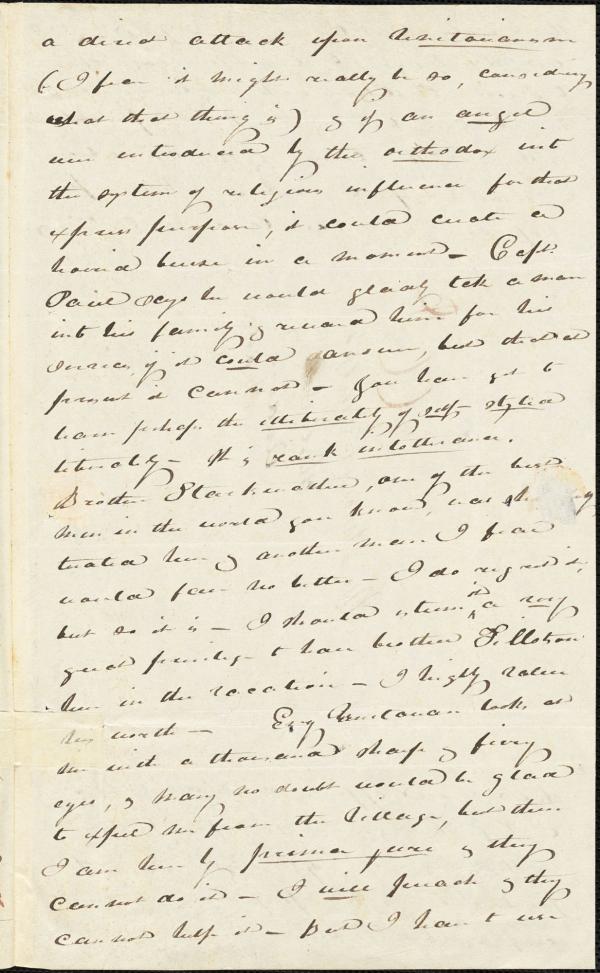 a direct attack upon Unitarianism
(I fear it might really be so, considering
what that thing is) & if an angel
were introduced by the orthodox into
the system of religious influence for that
express purpose, it could create a
horrid buzz in a moment - Capt.
Paul says he would gladly take a man
into his family & reward him for his
services if it could answer, but that at
present it cannot - You have yet to
learn perhaps the illiberality of self-styled
liberality - It is rank intolerance.
Brother Blackmother, one of the best
men in the world you know, was
treated here & another man I fear
would fare no better - I do regret it,
but so it is - I should esteem it a very
great privilege to have brother Tillotson
here in the vacation - I highly value
his worth - Every Unitarian looks at
me with a thousand sharp & firey
eyes, & many no doubt would be glad
to expel me from the village, but then
I am here by primo jure & they
cannot do it - I will preach & they
cannot help it - But I have to use